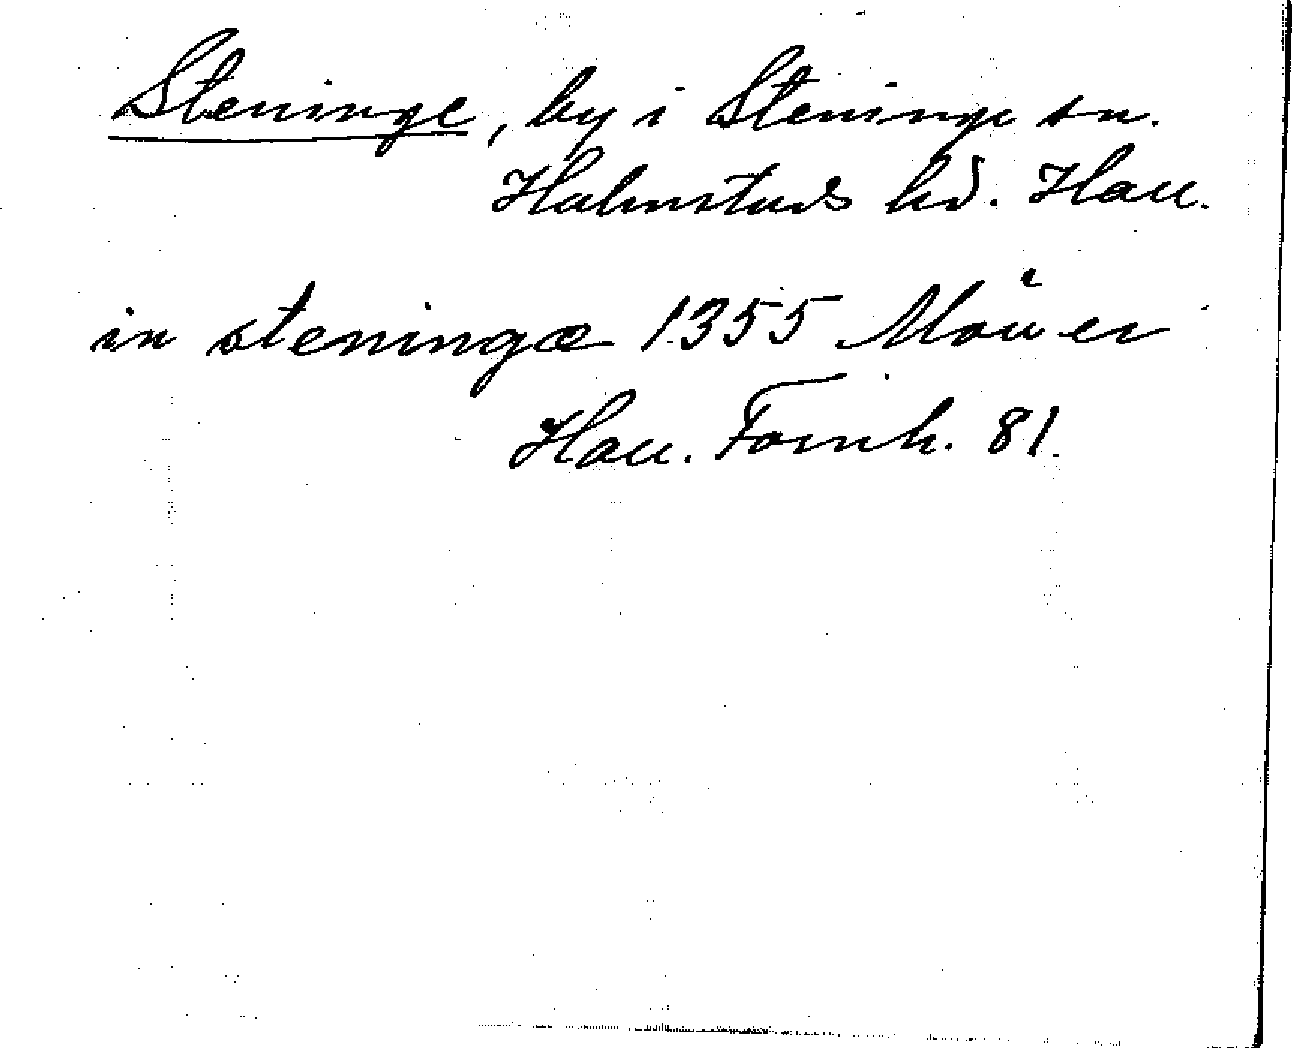 Steninge, by i Steninge sn.
Halmstads hd. Hall.
in steningæ 1355 Möller
Hall. Fornh. 81.